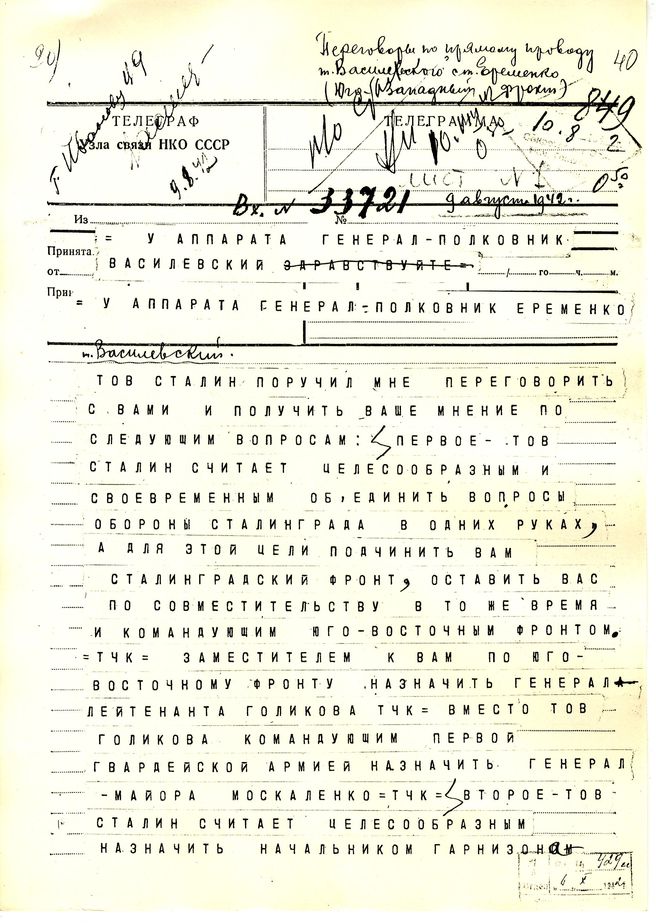 Переговоры по прямому проводу
т. Василевского с т. Еременко
(Юго- Западный фронт)
40
849
ТЕЛЕГРАФ
Узла связи НКО СССР
9.8.42
ТЕЛЕГРАММА
10.8
2
ЛИСТ № 1
0 50
Вх. № 33721
9 августа 1942 г.
Из
№
= У АППАРАТА ГЕНЕРАЛ-ПОЛКОВНИК
Принята
от
ВАСИЛЕВСКИЙ ЗДРАВСТВУЙТЕ=
/ го ч. м.
= У АППАРАТА ГЕНЕРАЛ-ПОЛКОВНИК ЕРЕМЕНКО
т. Василевский.
ТОВ СТАЛИН ПОРУЧИЛ МНЕ ПЕРЕГОВОРИТЬ
С ВАМИ И ПОЛУЧИТЬ ВАШЕ МНЕНИЕ ПО
СЛЕДУЮЩИМ ВОПРОСАМ: ПЕРВОЕ- ТОВ
СТАЛИН СЧИТАЕТ ЦЕЛЕСООБРАЗНЫМ И
СВОЕВРЕМЕННЫМ ОБ,ЕДИНИТЬ ВОПРОСЫ
ОБОРОНЫ СТАЛИНГРАДА В ОДНИХ РУКАХ,
А ДЛЯ ЭТОЙ ЦЕЛИ ПОДЧИНИТЬ ВАМ
СТАЛИНГРАДСКИЙ ФРОНТ, ОСТАВИТЬ ВАС
ПО СОВМЕСТИТЕЛЬСТВУ В ТО ЖЕ ВРЕМЯ
И КОМАНДУЮЩИМ ЮГО-ВОСТОЧНЫМ ФРОНТОМ.
=ТЧК= ЗАМЕСТИТЕЛЕМ К ВАМ ПО ЮГО-
ВОСТОЧНОМУ ФРОНТУ НАЗНАЧИТЬ ГЕНЕРАЛ-
ЛЕЙТЕНАНТА ГОЛИКОВА ТЧК= ВМЕСТО ТОВ
ГОЛИКОВА КОМАНДУЮЩИМ ПЕРВОЙ
ГВАРДЕЙСКОЙ АРМИЕЙ НАЗНАЧИТЬ ГЕНЕРАЛ
-МАЙОРА МОСКАЛЕНКО=ТЧК= ВТОРОЕ-ТОВ
СТАЛИН СЧИТАЕТ ЦЕЛЕСООБРАЗНЫМ
НАЗНАЧИТЬ НАЧАЛЬНИКОМ ГАРНИЗОНА